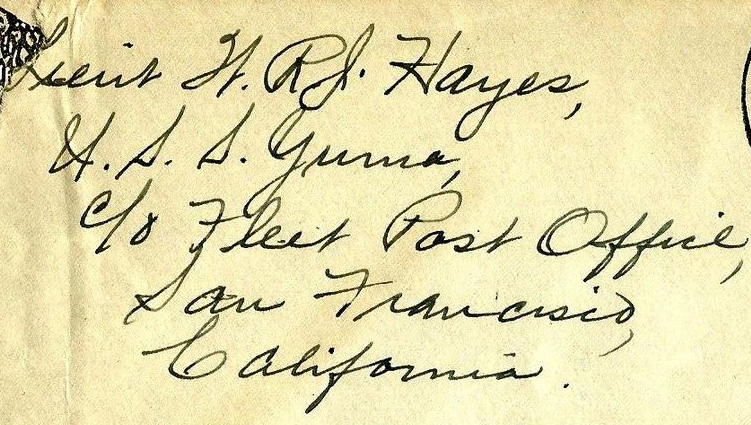 Lieut W. R. J. Hayes,
U. S. S. Yuma,
c/o Fleet Post Office,
San Francisco,
California.